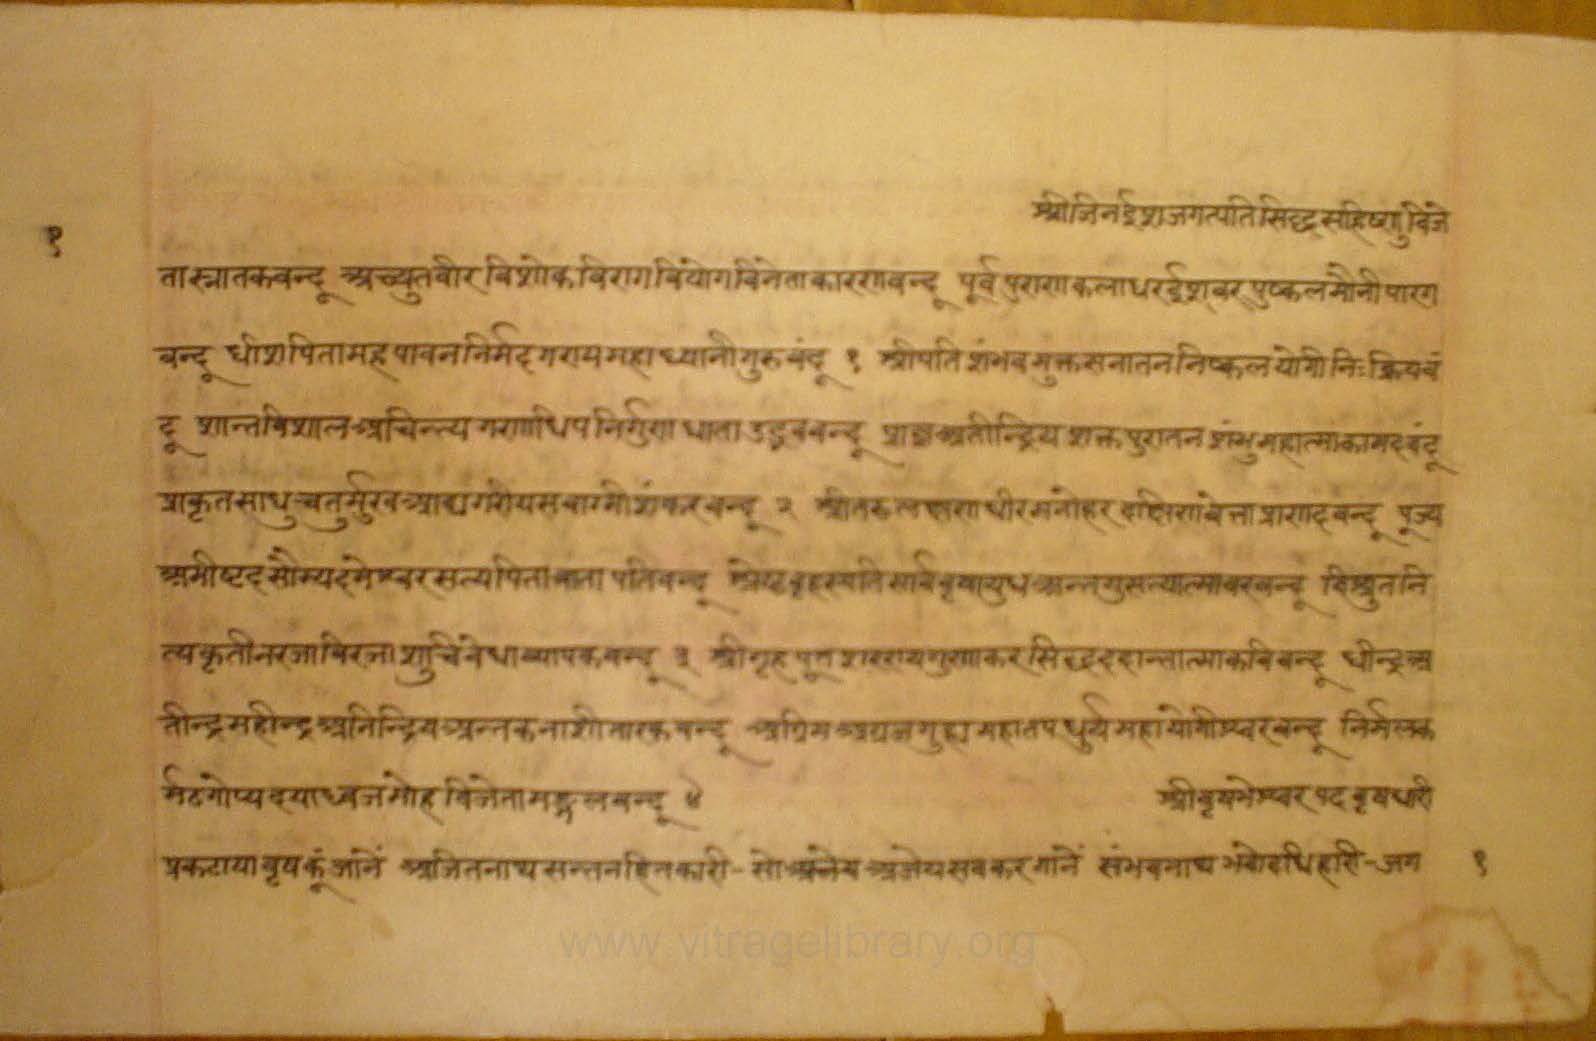 श्रीजिनईशजगत्पतिसिद्धसहिष्णुविजे
१
तास्नातकवन्दू अच्युतवीरविशोकविरागवियोगविनेताकारणवन्दू पूर्वपुराणकलाधरईश्वरपुष्कलमौनीपारग
वन्दू धीशपितामहपावननिर्मदगण्यमहाध्यानीगुरुवंदू १ श्रीपतिशंभवमुक्तसनातननिष्कलयोगीनिःक्रियवं
दू शान्तविशालअचिन्त्यगणाधिपनिर्गुणधाताउद्भववन्दू प्राज्ञअतीन्द्रियशक्तपुरातनशंभुमहात्माकामदवंदू
प्राकृतसाधुचतुर्मुखआद्यगरीयसवाग्मीशंकरवन्दू २ श्रीतरुलक्षणधीरमनोहरदक्षिणवेत्ताप्राणदवन्दू पूज्य
अभीष्टदसौम्यदमेश्वरसत्यपिता पतिवन्दू श्रेष्ठबृहस्पतिसार्ववृषायुधअनन्तगुसत्यात्मावरवन्दू विश्रुतनि
त्यकृतीनरजाविरजाशुचिवेधाव्यापकवन्दू ३ श्रीगृहपूतशरण्यगुणाकरसिद्धददान्तात्माकविवन्दू धीन्द्रअ
तीन्द्रमहीन्द्रअनिन्द्रियअन्तकनाशीतारकवन्दू अग्रिमअग्रजगुह्यमहातपधुर्यमहायोगीश्वरवन्दू निर्मलक
र्मठगोप्यदयाध्वजमोहविजेतामङ्गलवन्दू ४ श्रीवृषभेश्वरपदवृषधारी
प्रकटायावृषकूंजांनें अजितनाथसन्तनहितकारी-सो अजेयसवकरगांनें संभवनाथभवोदधिहारी-जग
१
www.vitragelibrary.org